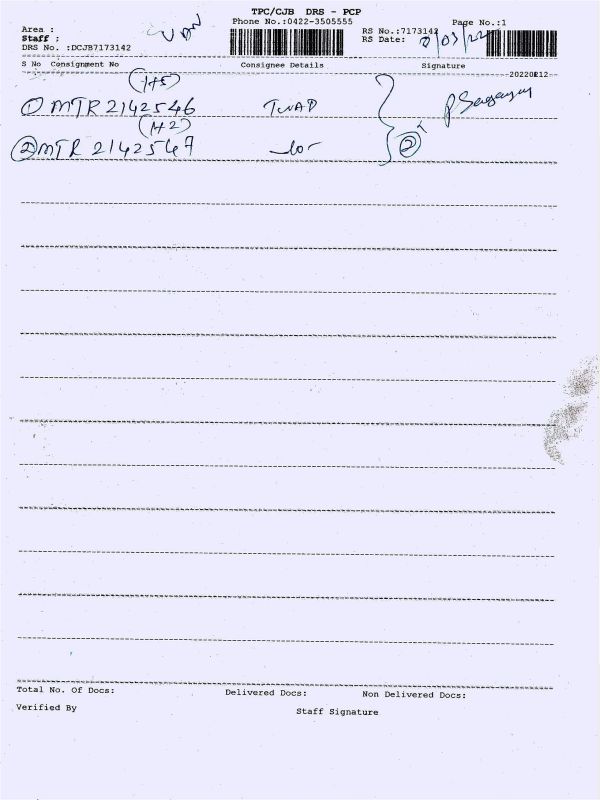 TPC/CJB DRS - PCP
Phone No.:0422-3505555
Page No.:1
Area :
VAN
RS No.:7173142
Staff :
RS Date: 2/03/22
DRS No. :DCJB7173142
S No Consignment No Consignee Details Signature
(1+5)
① MTR 2142546 TWAD
(1+2)
② MTR 2142547 -do- ②
Total No. Of Docs: Delivered Docs: Non Delivered Docs:
Verified By Staff Signature